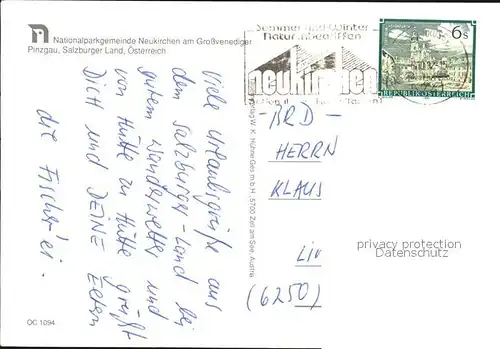 Nationalparkgemeinde Neukirchen am Großvenediger
Pinzgau, Salzburger Land, Österreich
Sommer und Winter
Natur inbegriffen
neukirchen
6 S
REPUBLIK ÖSTERREICH
Viele Urlaubsgrüße aus
dem Salzburger-Land bei
gutem Wanderwetter und
von Hütte zu Hütte grüßt
Dich und DEINE Eltern
die Fischer'ei.
Verlag W. K. Hühne Ges. m. b. H., 5700 Zell am See, Austria
- BRD -
HERRN
KLAUS
(6250)
privacy protection
Datenschutz
OC 1094